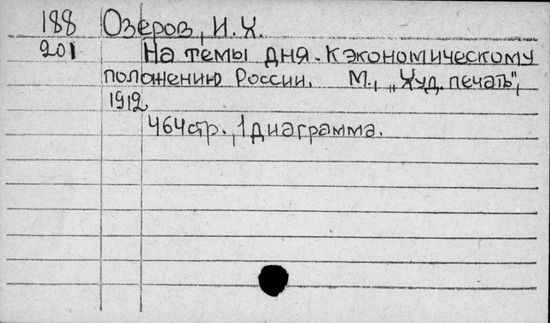 188 Озеров, И.Х.
201 На темы дня. К экономическому
положению России. М., „Худ. печать",
1912
464стр., 1 диаграмма.